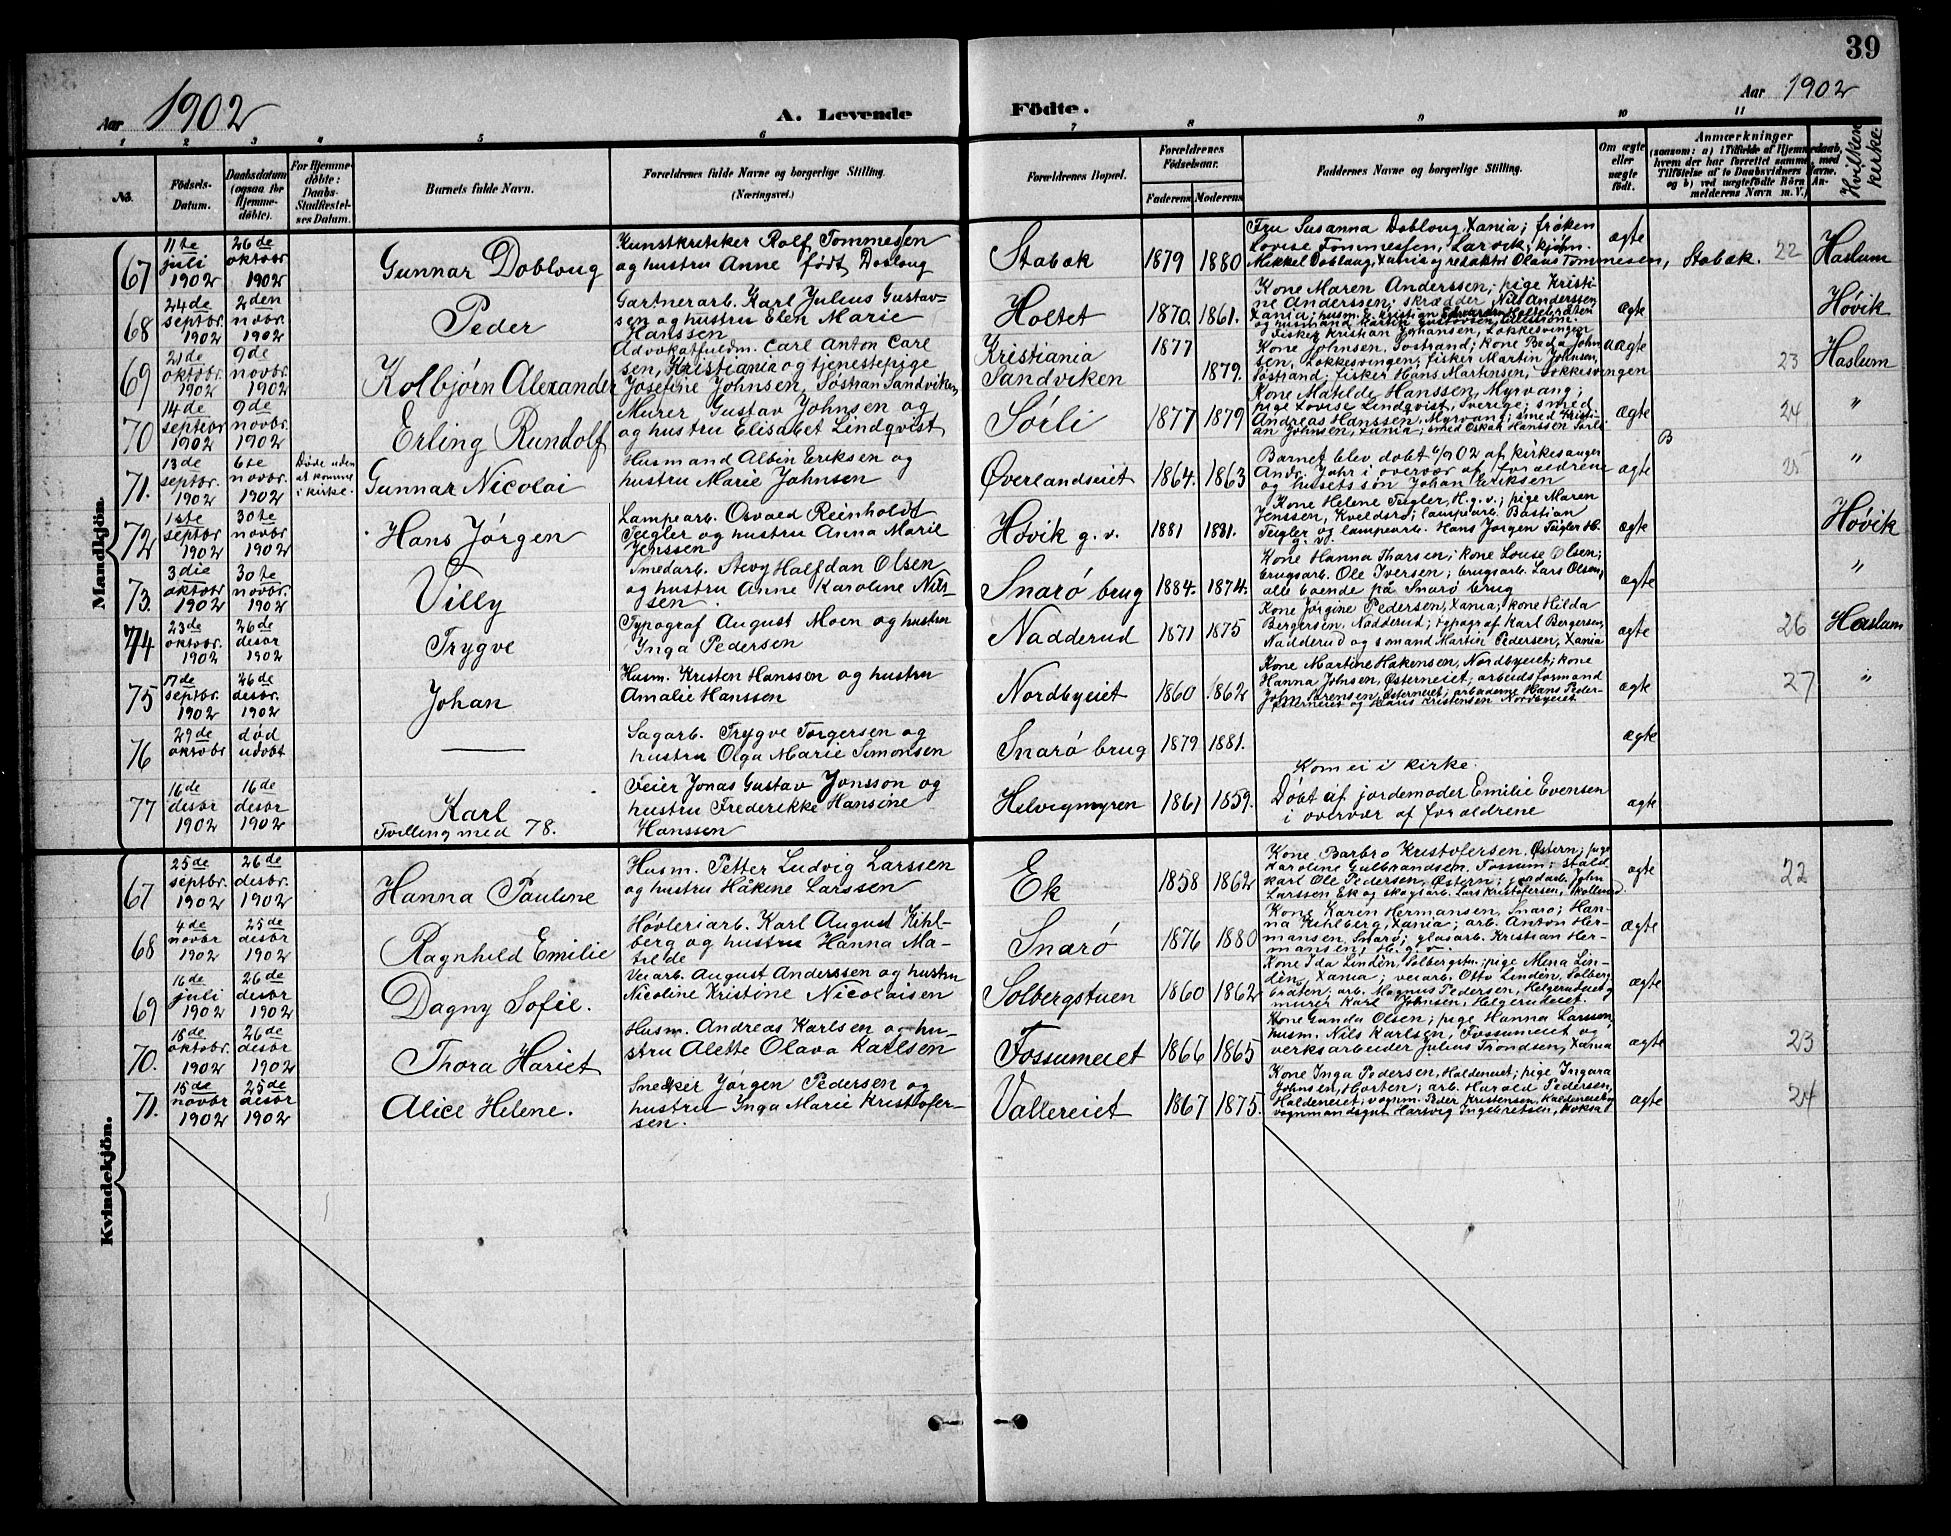 39
Aar 1902
A. Levende Födte.
Aar 1902
1 2 3 4 5 6 7 8 9 10 11
No.
Födsels-Datum.
Daabsdatum (ogsaa for Hjemmedöbte).
For Hjemmedöbte: Daabs-Stadfæstelses Datum.
Barnets fulde Navn.
Forældrenes fulde Navne og borgerlige Stilling. (Næringsvei.)
Forældrenes Bopæl.
Forældrenes Födselsaar.
Faderens Moderens
Faddernes Navne og borgerlige Stilling.
Om ægte eller uægte födt.
Anmærkninger
(saasom: a) i Tilfælde af Hjemmedaab, hvem der har forrettet samme, med Tilföielse af to Daabsvidners Navne, og b) ved uægtefödte Börn Anmelderens Navn m. V.)
Hvilken kirke.
Mandkjön.
67 11te juli 1902 26de oktobr 1902 Gunnar Dobloug
Kunstkritiker Rolf Tommessen
og hustru Anne født Dobloug
Stabæk 1879 1880
Fru Susanna Dobloug, Xania; frøken
Lovise Tommessen, Larvik; kjøbm.
Mikkel Dobloug, Xania og redaktør Olaus Tommesen,
ægte Stabæk. 22 Haslum
68 24de septbr. 1902 2den novbr. 1902 Peder
Gartnerarb. Karl Julius Gustav-
sen og hustru Elen Marie
Hanssen
Holtet 1870. 1861.
Kone Maren Anderssen; pige Kristi-
ne Anderssen; skrædder Nils Anderssen
ægte Høvik
69 21de oktobr 1902 9de novbr. 1902 Kolbjørn Alexander
Advokatfuldm. Carl Anton Carl
sen, Kristiania og tjenestepige
Josefine Johnsen, Søstran Sandviken,
Kristiania
Sandviken
1877 1879.
Fisker Kristian Johansen, Løkkesvingen
Kone Johnsen, Søstrand; kone Beda John
sen, Løkkesvingen, fisker Martin Johnsen,
Søstrand; fisker Hans Martinsen, Løkkesvingen
uægte 23 Haslum
70 14de septbr 1902 9de novbr. 1902 Erling Rundolf
Murer Gustav Johnsen og
og hustru Elisabet Lindqvist
Sørli 1877 1879
Kone Matilde Hanssen, Myrvang;
pige Lovise Lindqvist, Sverige; smed
Andreas Hanssen, Myrvang; smed Kristi-
an Johnsen, Xania; smed Oskar Hanssen Sørli
ægte B 24 "
71. 13de septbr. 1902 6te novbr. 1902 Døde uden at komme i kirke. Gunnar Nicolai
Husmand Albin Eriksen og
hustru Marie Johnsen
Øverlandseiet 1864. 1863
Barnet blev døbt 6/11 02 af kirkesanger
Andr. Jahr i overvær af forældrene
og husets søn Johan Eriksen
ægte 25 "
72 1ste septbr 1902 30te novbr. 1902 Hans Jørgen
Lampearb. Osvald Reinholdt
Teigler og hustru Anna Marie
Jenssen
Høvik g. v. 1881 1881.
Kone Helene Teigler, H.g.v.; pige Maren
Jenssen, Kveldsro; lampearb. Bastian
Teigler og lampearb. Hans Jørgen Teigler H.
g. v.
ægte Høvik
73. 3die oktobr 1902 30te novbr. 1902 Villy
Smedarb. Alvy Halfdan Olsen
og hustru Anne Karoline Nils-
sen.
Snarø brug 1884. 1874.
Kone Hanna Tharsen; kone Louse Olsen;
brugsarb. Ole Iversen; brugsarb. Lars Olsen,
alle boende på Snarø brug
ægte "
74 23de oktobr. 1902 26de desbr 1902 Trygve
Typograf August Moen og hustru
Inga Pedersen
Nadderud 1871 1875
Kone Jørgine Pedersen, Xania; kone Hilda
Bergersen, Nadderud; typograf Karl Bergersen,
Nadderud og sømand Martin Pedersen, Xania
ægte 26 Haslum
75 17de septbr. 1902 26de desbr. 1902 Johan
Husm. Kristen Hanssen og hustru
Amalie Hanssen
Nordbyeiet 1860 1862
Kone Martine Håkensen, Nordbyeiet; kone
Hanna Johnsen, Østerneiet; arbeidsformand
John Sørensen, Østerneiet; arbaderne Hans Peder-
Østerneiet og Hans Kristensen Nordbyeiet
ægte 27 "
76 29de oktobr død udøbt —
Sagarb. Trygve Torgersen og
hustru Olga Marie Simonsen
Snarø brug 1879 1881.
ægte
77 16de desbr 1902 16de desbr 1902 Karl
Tvilling med 78.
Feier Jonas Gustav Jonsson og
hustru Frederikke Hansine
Hanssen
Helvigmyren 1861 1859.
Kom ei i kirke.
Døbt af jordemoder Emilie Evensen
i overvær af forældrene
ægte
Kvindekjön.
67 25de septbr. 1902 26de desbr. 1902 Hanna Pauline
Husm. Petter Ludvig Larssen
og hustru Håkine Larssen
Ek 1858 1862
Kone Barbro Kristofersen, Østern; pige
Karoline Gulbrandsen, Fossum; stald
karl Ole Pedersen, Østern; jordarb. John
Larssen Ek og skogsarb. Lars Kristofersen, Skollerud.
ægte 22
68 4de novbr 1902 25de desbr 1902 Ragnhild Emilie
Høvleriarb. Karl August Kihl-
berg og hustru Hanna Ma-
tilde
Snarø 1876 1880
Kone Karen Hermansen, Snarø; Han-
na Kihlberg, Xania; arb. Anton Her-
mansen, Snarø; glasarb. Kristian Her-
mansen, H. g. v.
ægte
69 16de juli 1902 26de desbr 1902 Dagny Sofie.
Veiarb. August Anderssen og hustru
Nicoline Kristine Nicolaisen
Solbergstuen 1860 1862
Kone Ida Lindén, Solbergstu.; pige Mena Lin-
dén, Xania; veiarb. Otto Lindén, Solberg
bråten, arb. Magnus Pedersen, Helgerudeiet og
murer Karl Johnsen, Helgerudeiet.
ægte
70. 18de oktobr. 1902 26de desbr 1902 Thora Hariet
Husm. Andreas Karlsen og hu-
stru Alette Olava Karlsen
Fossumeiet 1866 1865
Kone Gunda Olsen; pige Hanna Larssen,
husm. Nils Karlsen, Fossumeiet og
verksarbeider Julius Trondsen, Xania
ægte 23
71. 15de novbr 1902 25de desbr 1902 Alice Helene.
Snedker Jørgen Pedersen og
hustru Inga Marie Kristofer-
sen.
Vallereiet 1867 1875.
Kone Inga Pedersen, Haldeneiet; pige Ingara
Johnsen, Horten; arb. Harald Pedersen,
Haldeneiet; vognm. Peder Kristensen, Haldeneiet og
vognmandsgut Hartvig Ingebretsen, Koksa
ægte 24